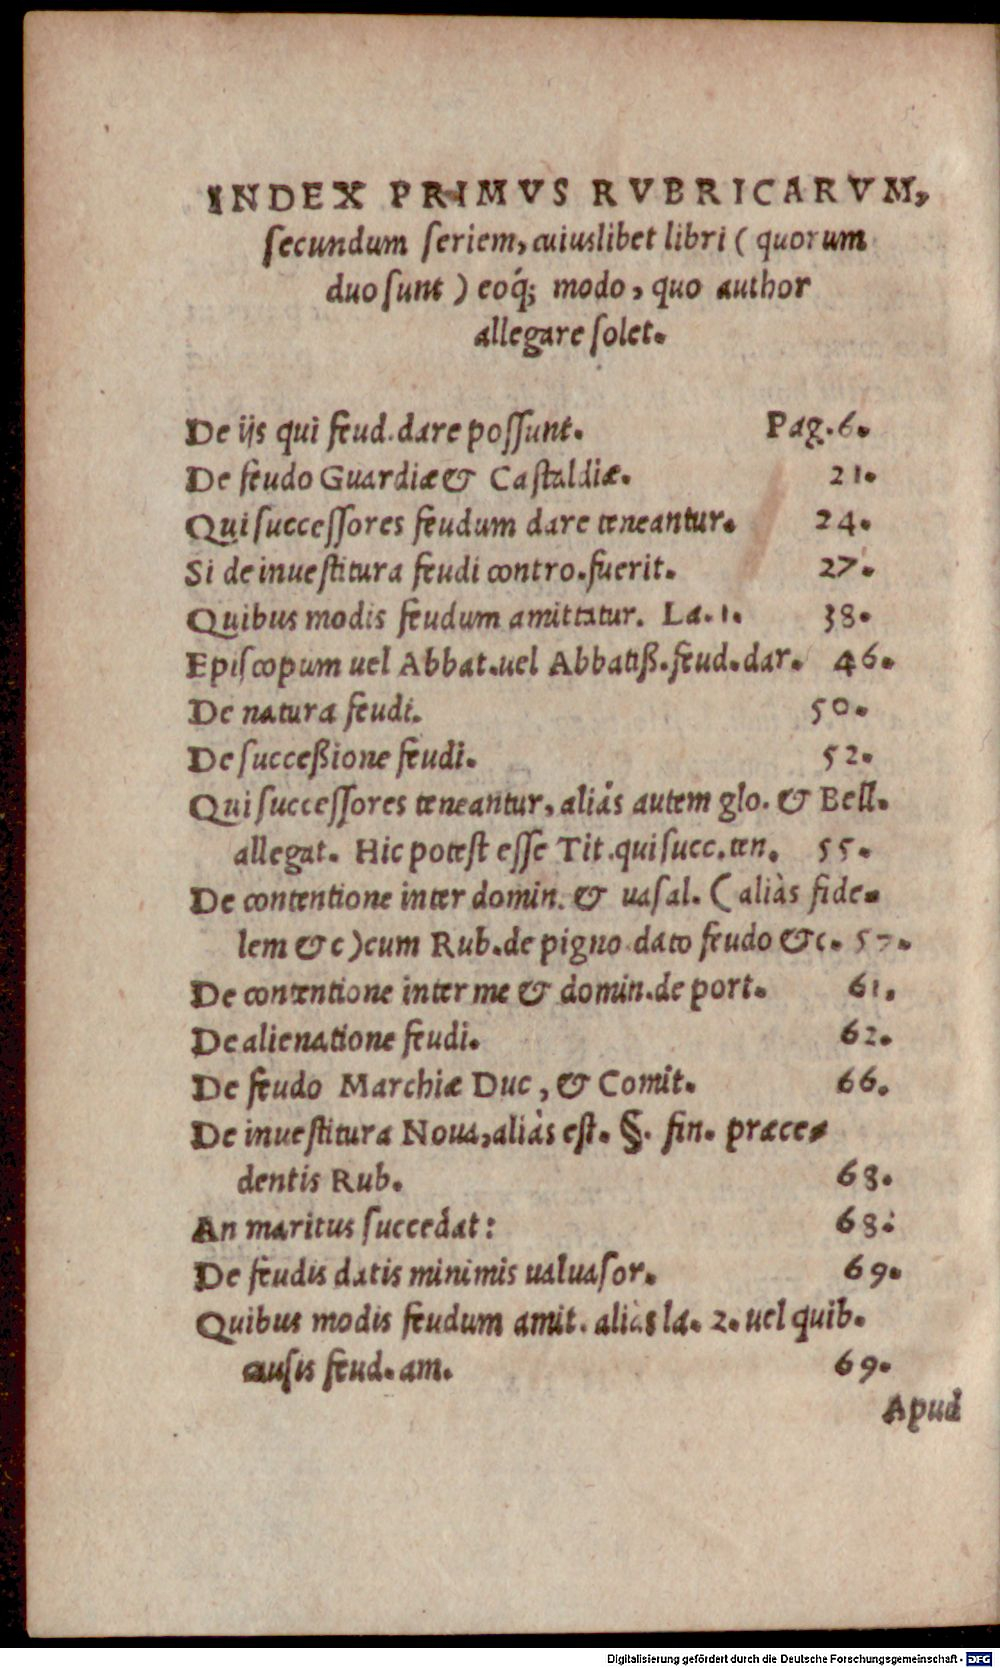 INDEX PRIMVS RVBRICARVM,
ſecundum ſeriem, cuiuslibet libri ( quorum
duo ſunt ) eoq́; modo, quo author
allegare ſolet.
De ijs qui feud. dare poſſunt. Pag. 6.
De feudo Guardiæ & Caſtaldiæ. 21.
Qui ſucceſſores feudum dare teneantur. 24.
Si de inueſtitura feudi contro. fuerit. 27.
Quibus modis feudum amittatur. La. 1. 38.
Epiſcopum uel Abbat. uel Abbatiß. feud. dar. 46.
De natura feudi. 50.
De ſucceßione feudi. 52.
Qui ſucceſſores teneantur, aliàs autem glo. & Bell.
allegat. Hic poteſt eſſe Tit. qui ſucc. ten. 55.
De contentione inter domin. & uaſal. ( aliàs fide-
lem &c ) cum Rub. de pigno dato feudo &c. 57.
De contentione inter me & domin. de port. 61.
De alienatione feudi. 62.
De feudo Marchiæ Duc, & Comit. 66.
De inueſtitura Noua, aliàs eſt. §. fin. præce-
dentis Rub. 68.
An maritus ſuccedat: 68:
De feudis datis minimis ualuaſor. 69.
Quibus modis feudum amit. aliàs la. 2. uel quib.
cauſis feud. am. 69.
Apud
Digitalisierung gefördert durch die Deutsche Forschungsgemeinschaft - DFG